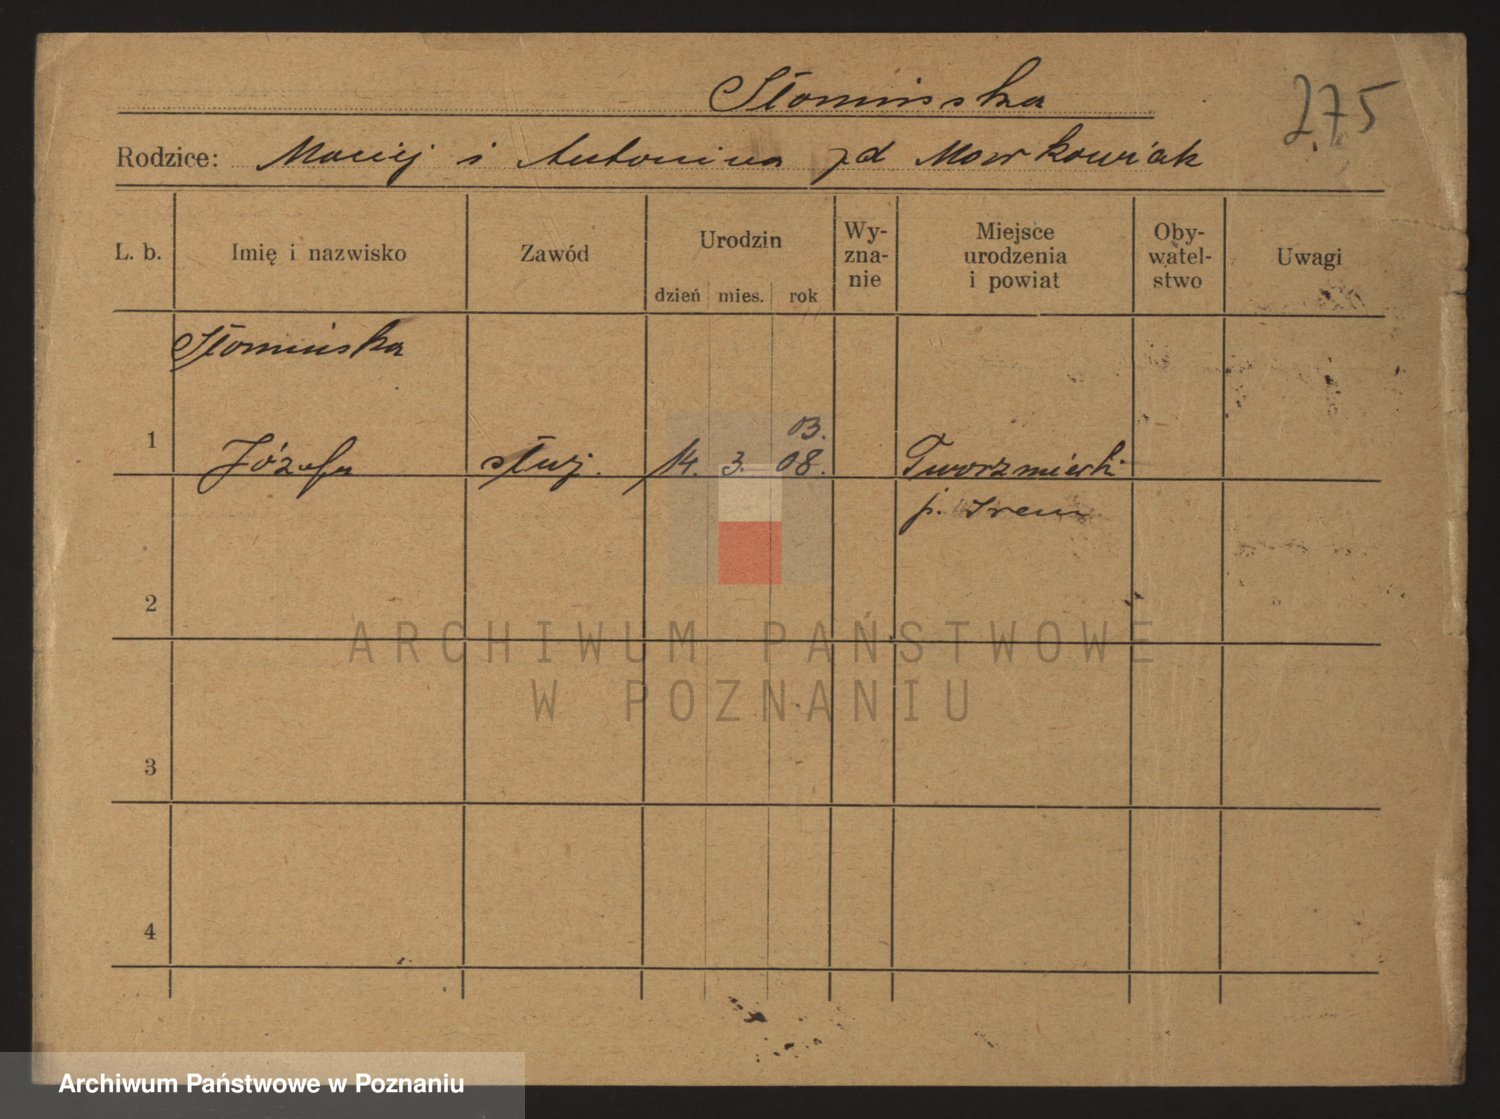 Słomińska
275
Rodzice: Maciej i Antonina zd Markowiak
L. b.
Imię i nazwisko
Zawód
Urodzin
dzień mies. rok
Wy-
zna-
nie
Miejsce
urodzenia
i powiat
Oby-
watel-
stwo
Uwagi
Słomińska
03.
1 Józefa służ. 14. 3. 08.
p.
2
ARCHIWUM PAŃSTWOWE
W POZNANIU
3
4
Archiwum Państwowe w Poznaniu